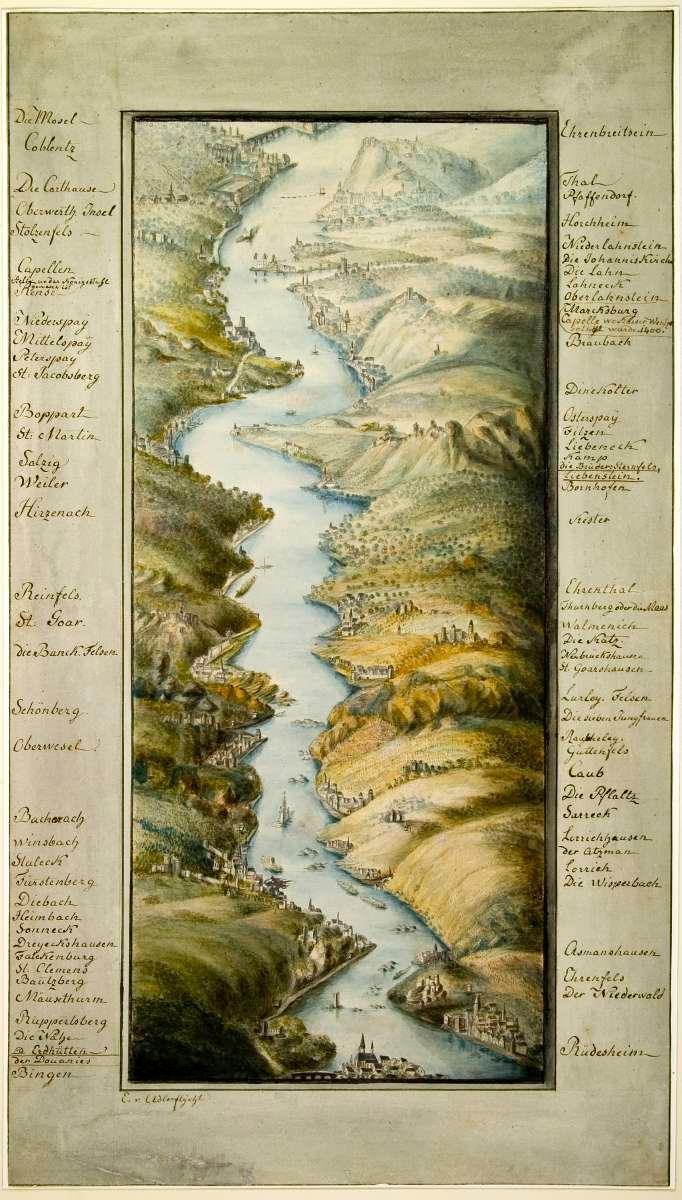 Die Mosel
Coblentz
Die Carthause
Oberwerth Insel
Stolzenfels
Capellen
Rense
Niederspaÿ
Mittelspaÿ
Peterspaÿ
St: Jacobsberg
Boppart
St: Martin
Salzig
Weiler
Hirzenach
Reinfels.
St: Goar.
die Banck Felsen
Schönberg
Oberwesel
Bacherach
Winsbach
Staleck
Fürstenberg
Diebach
Heimbach
Sonneck
Dreyeckshausen
Falckenburg
St: Clemens
Bautzberg
Mausethurm
Ruppertsberg
Die Nahe
Erdhütten
der Douanies
Bingen
Ehrenbreitsein
Thal
Pfaffendorf.
Horchheim
Niederlahnstein
Die Johannis Kirch
Die Lahn
Lahneck
Oberlahnstein
Marcksburg
Capelle wo Kaiser
wurde 1400.
Braubach
Dinckolter
Osterspaÿ
Filzen
Liebeneck
Kamp
die Brüder Sternfels,
Liebenstein.
Bornhofen
Kester
Ehrenthal
Thurnberg oder die Maus
Walmenich
Die Katz
St. Goarshausen
Lurley. Felsen
Die sieben Jungfrauen
Guttenfels
Caub
Die Pfaltz
Sarreck
Lorrichhausen
der
Lorrich
Die Wisperbach
Asmanshausen
Ehrenfels
Der Niederwald
Rüdesheim
E. v. Adlerflÿcht